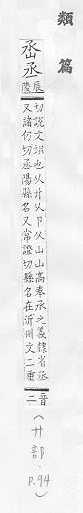 類篇
㞼丞辰陵切說文翊也从廾从卪从山山高奉承之義隸省丞
又諸仍切丞陽縣名又常證切縣名在沂州文二重音二
（廾部、P.94）